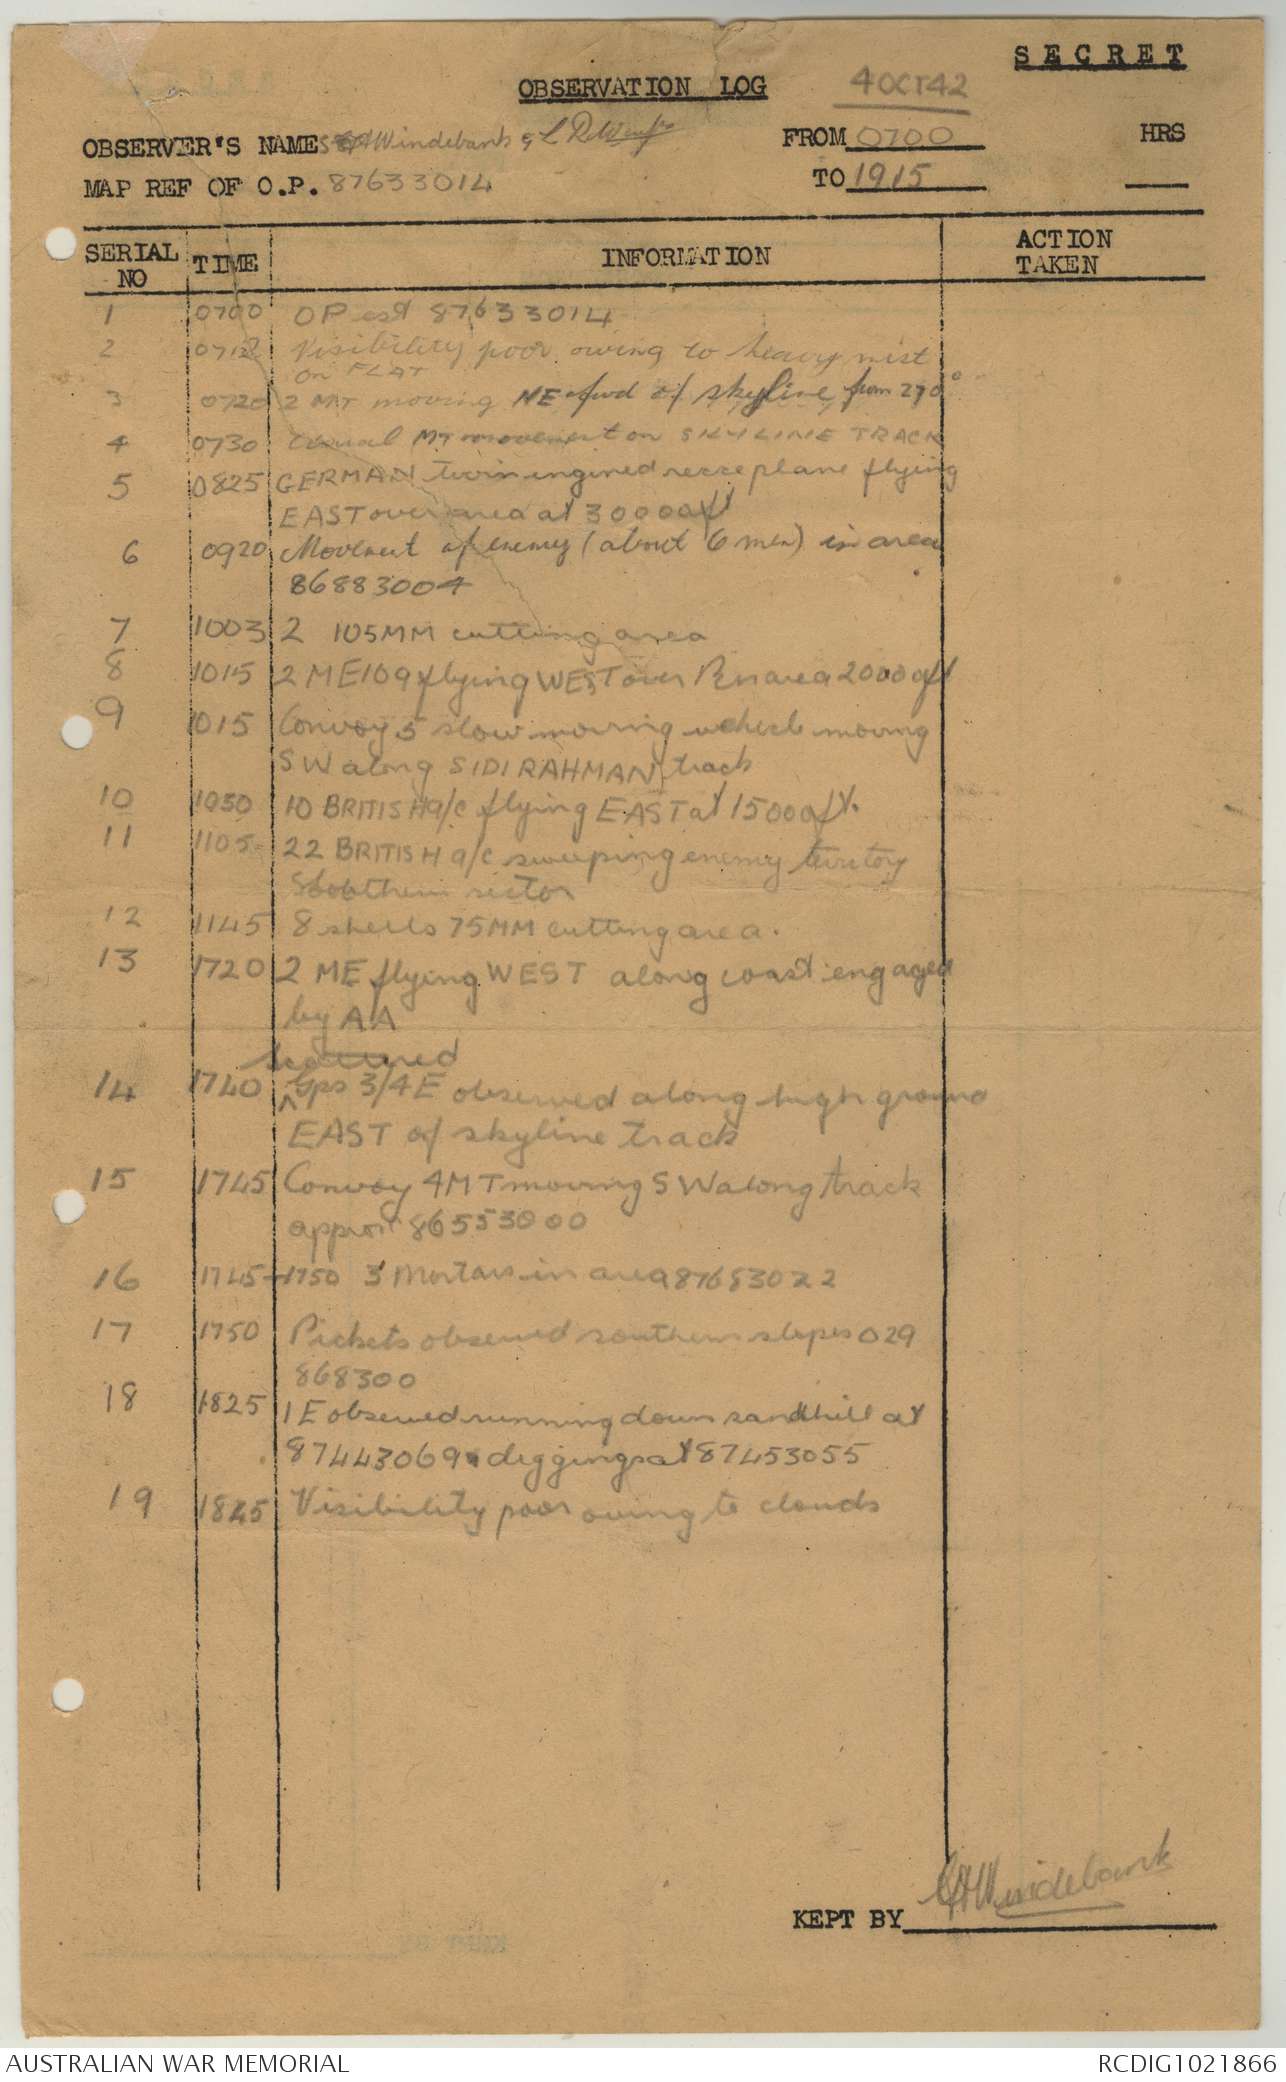 SECRET
OBSERVATION LOG 4 OCT 42
OBSERVER'S NAME Windebank & L FROM 0700 HRS
MAP REF OF O.P. 87633014 TO 1915
SERIAL NO TIME INFORMATION ACTION TAKEN
1 0700 OP est 87633014
2 Visibility poor owing to heavy mist
on FLAT
3 0720 2 MT moving NE fwd of skyline from 270°
4 0730 Casual MT movement on SKYLINE TRACK
5 0825 GERMAN twin engined recce plane flying
EAST over area at 30000ft
6 0920 Movement of enemy (about 6 men) in area
86883004
7 1003 2 105MM cutting area
8 1015 2 ME109 flying WEST over Bn area 2000ft
9 1015 Convoy 5 slow moving vehicle moving
SW along SIDI RAHMAN track
10 1030 10 BRITISH a/c flying EAST at 15000ft.
11 1105 22 BRITISH a/c sweeping enemy territory
Southern sector
12 1145 8 shells 75MM cutting area.
13 1720 2 ME flying WEST along coast engaged
by AA
scattered
14 1740 ^ Gps 3/4 E observed along high ground
EAST of skyline track
15 1745 Convoy 4 MT moving SW along track
approx 86553000
16 1745-1750 3 Mortars in area 87683022
17 1750 Pickets observed southern slopes 029
868300
18 1825 1 E observed running down sandhill at
87443069 diggings at 87453055
19 1845 Visibility poor owing to clouds
KEPT BY Windebank
AUSTRALIAN WAR MEMORIAL RCDIG1021866